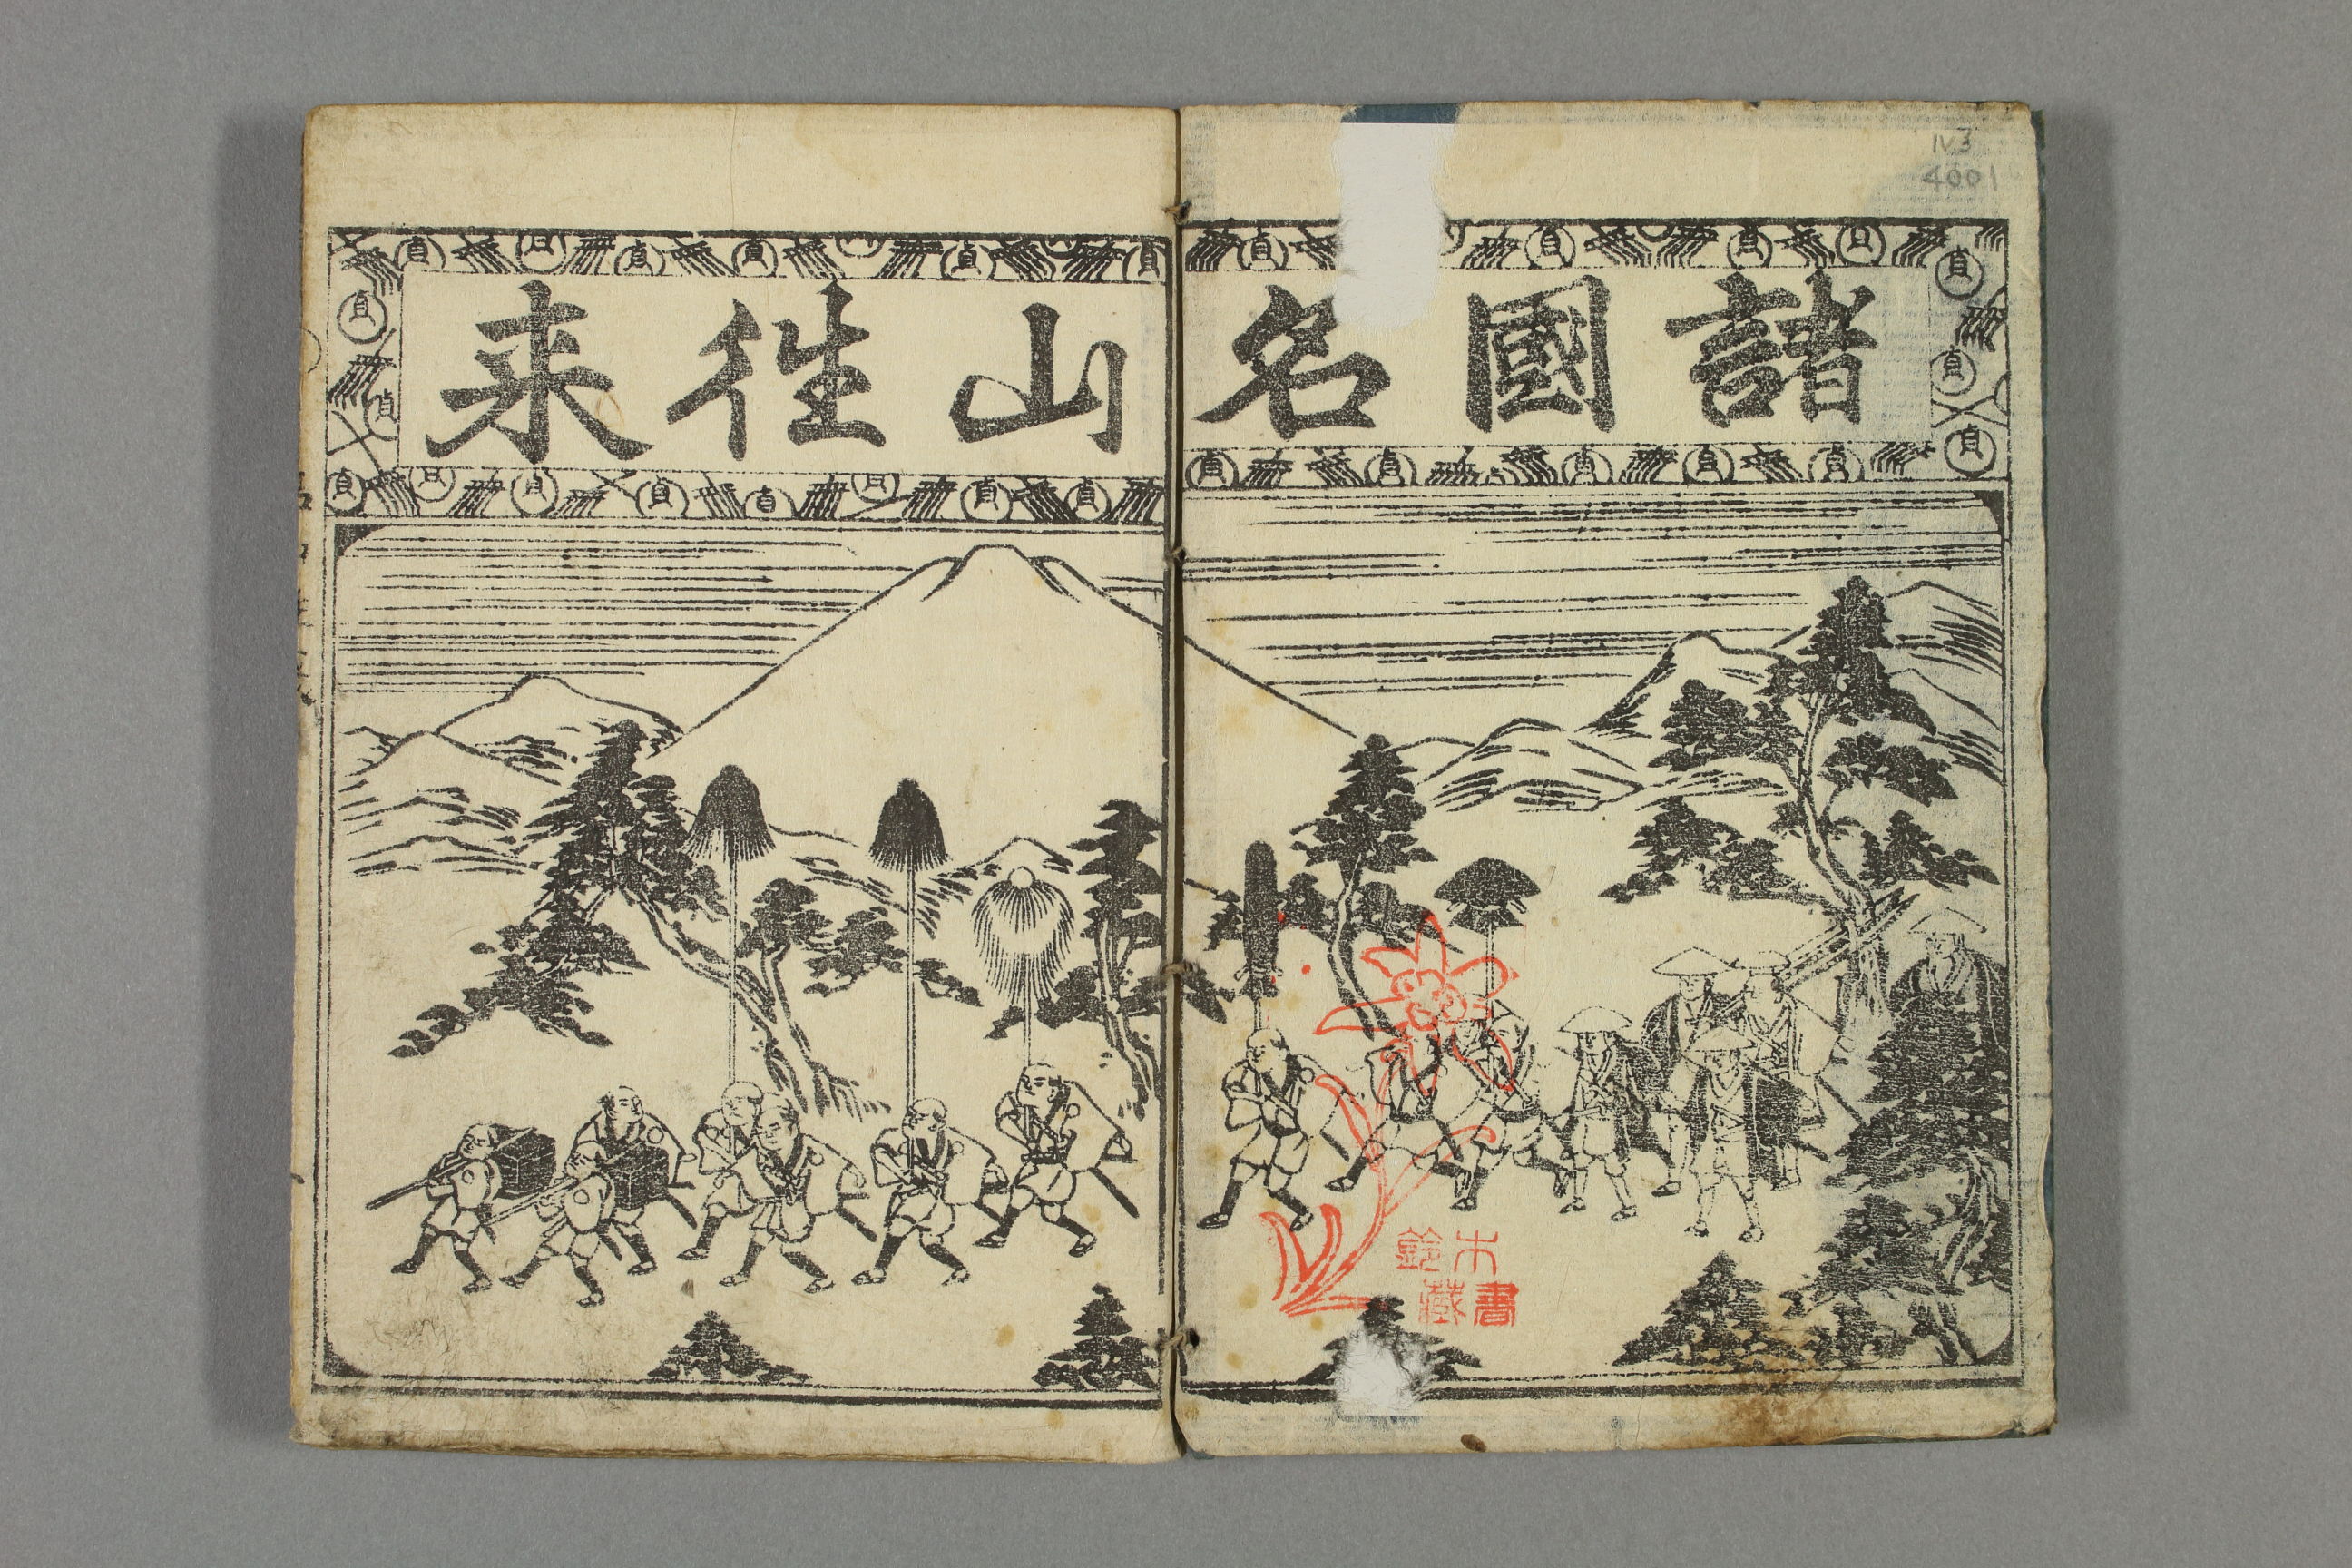 諸國名山徃来
IV3
4001
鈴木
藏書